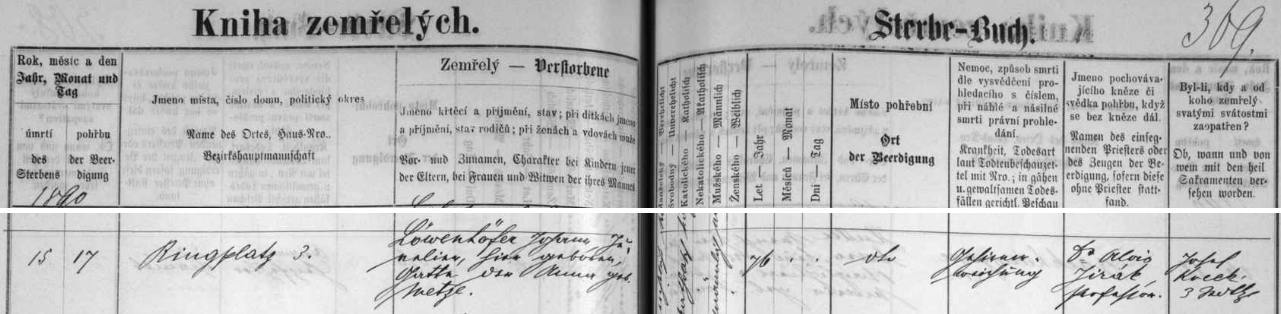 Kniha zemřelých.
Sterbe-Buch.
369.
Rok, měsíc a den
Jahr, Monat und
Tag
úmrtí
pohřbu
des
Sterbens
der Beer-
digung
1890
Jmeno místa, číslo domu, politický okres
Name des Ortes, Haus-Nro.
Bezirkshauptmannschaft
Zemřelý — Verstorbene
Jmeno křtěcí a příjmění, stav; při dítkách jmeno
a příjmění, stav rodičů; při ženách a vdovách muže
Vor- und Zunamen, Charakter bei Kindern jener
der Eltern, bei Frauen und Witwen der ihres Mannes
Svobodný — Unverehelicht
Katolického — Katholisch
Nekatolického — Akatholisch
Mužského — Männlich
Ženského — Weiblich
Let — Jahr
Měsíců — Monat
Dni — Tag
Místo pohřební
Ort
der Beerdigung
Nemoc, způsob smrti
dle vysvědčení pro-
hledacího s číslem,
při náhlé a násilné
smrti právní prohle-
dání.
Krankheit, Todesart
laut Todtenbeschauzet-
tel mit Nro.; in gähen
u. gewaltsamen Todes-
fällen gerichtl. Beschau
Jmeno pochováva-
jícího kněze či
svědka pohřbu, když
se bez kněze dál.
Namen des einseg-
nenden Priesters oder
des Zeugen der Be-
erdigung, sofern diese
ohne Priester statt-
fand.
Byl-li, kdy a od
koho zemřelý
svatými svátostmi
zaopatřen?
Ob, wann und von
wem mit den heil
Sakramenten ver-
sehen worden.
15 17 Ringplatz 3.
Löwenhöfer Johann, Ju-
welier, hier geboren,
Gatte der Anna geb.
76 . .
dto
Gehirn-
weichung
Dr Alois
Jirák,
Professor.
Josef